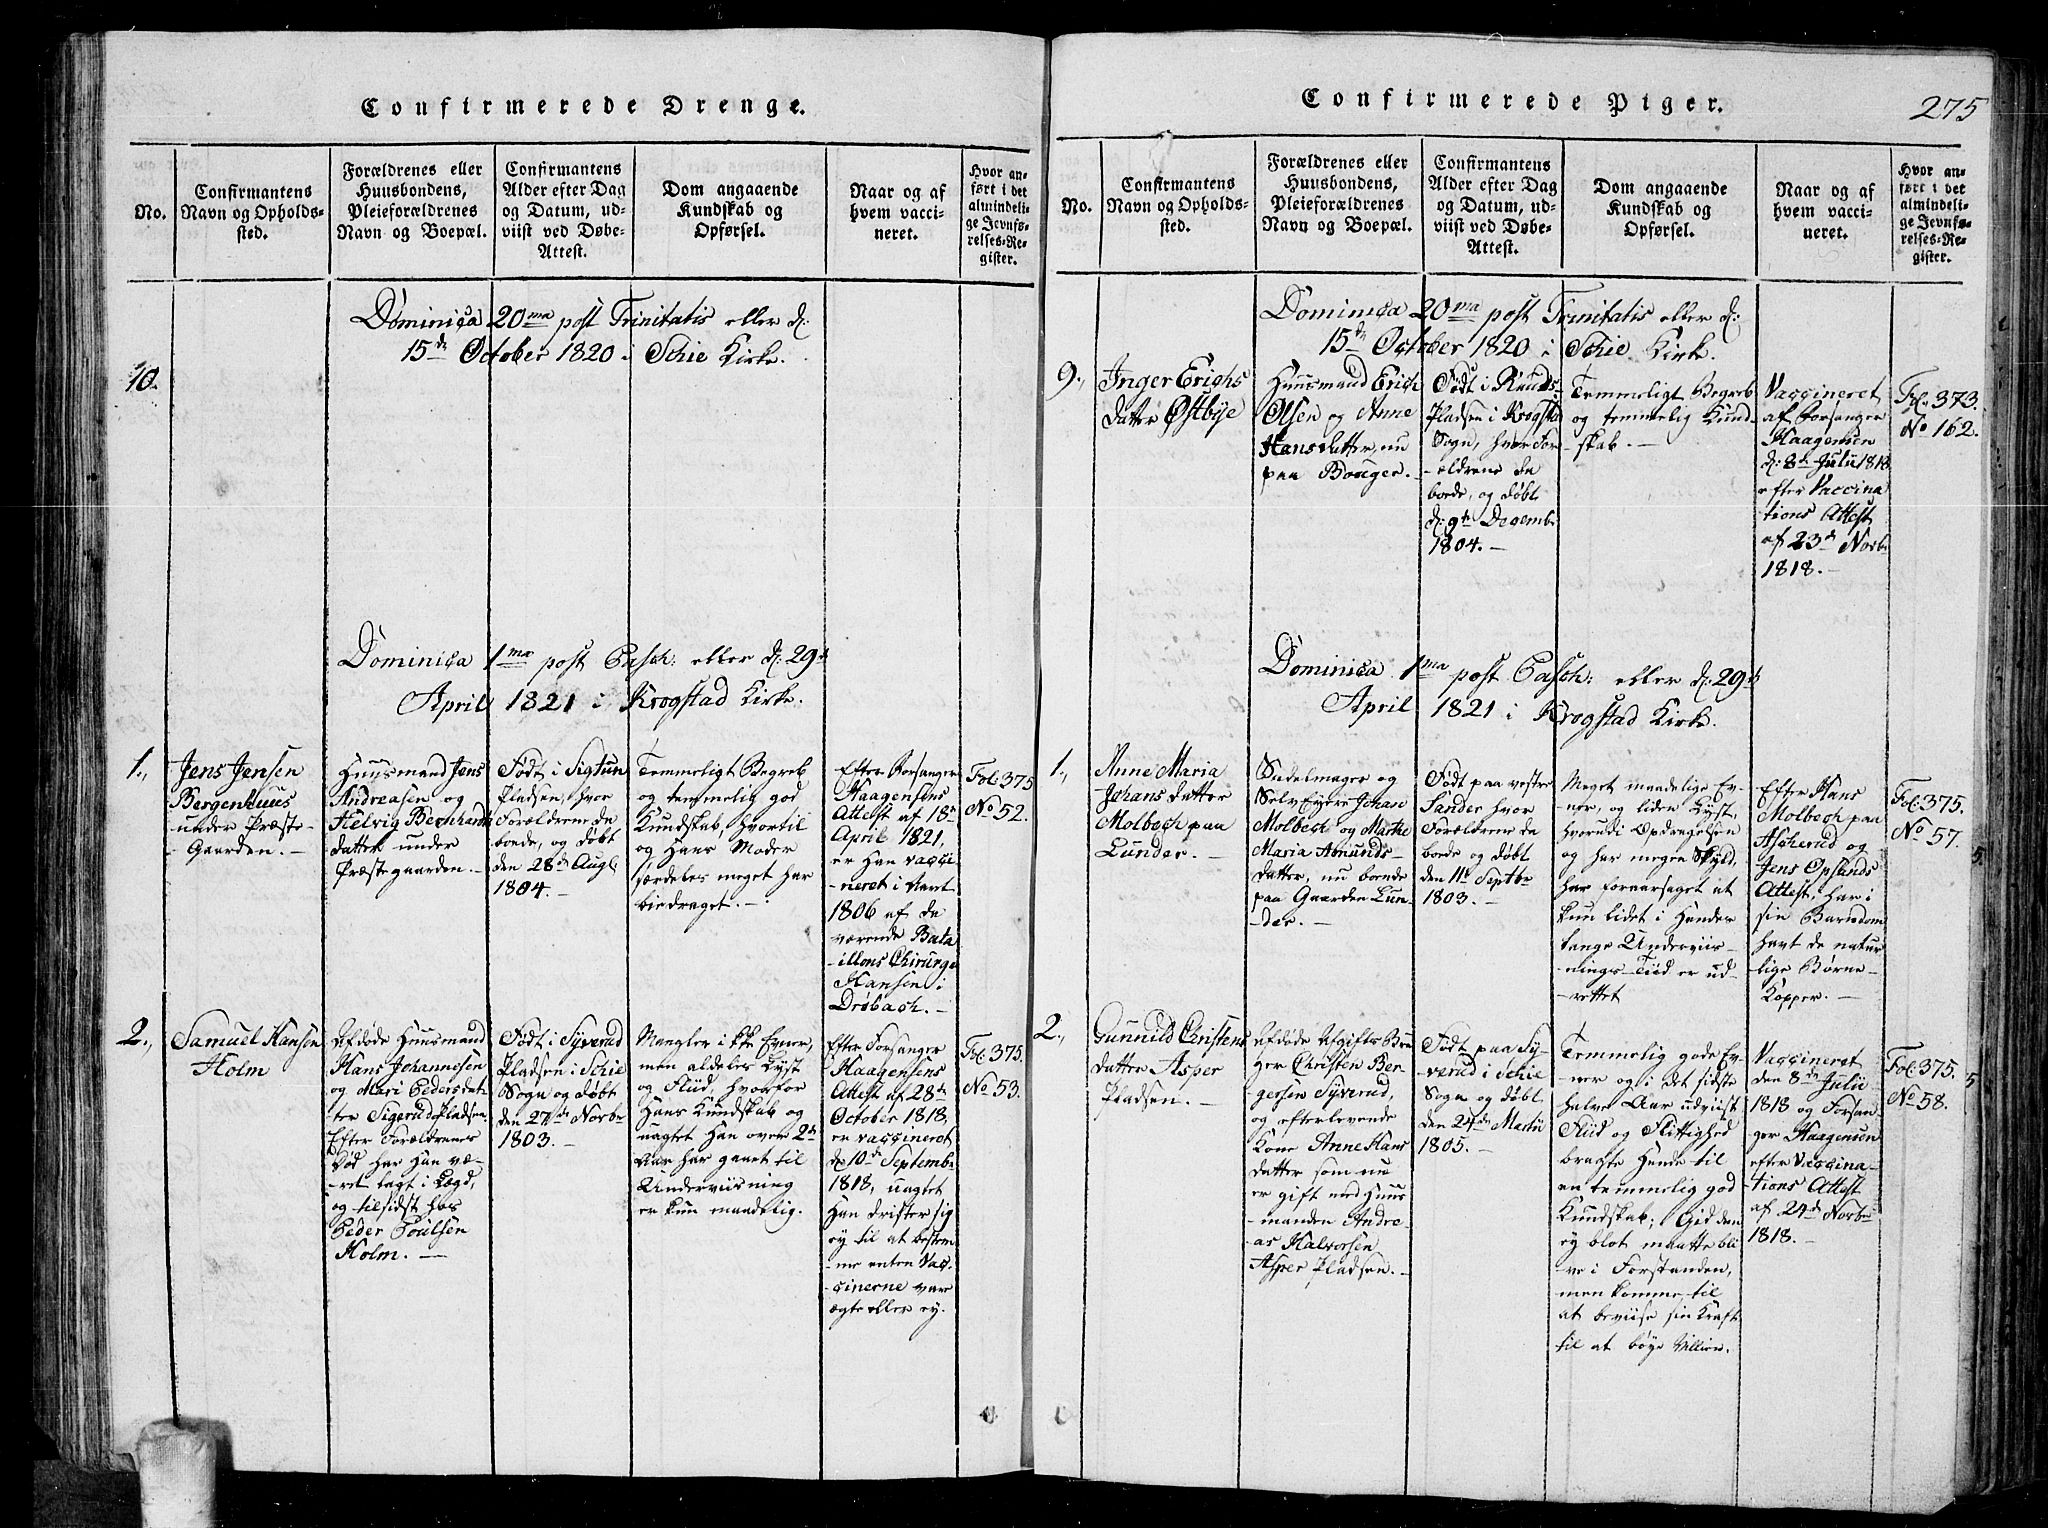 Confirmerede Drenge.
No.
Confirmantens
Navn og Opholds-
sted.
Forældrenes eller
Huusbondens,
Pleieforældrenes
Navn og Boepæl.
Confirmantens
Alder efter Dag
og Datum, ud-
viist ved Døbe-
Attest.
Dom angaaende
Kundskab og
Opførsel.
Naar og af
hvem vacci-
neret.
Hvor an-
ført i det
almindeli-
ge Jevnfø-
relses-Re-
gister.
Dominica 20ma post Trinitatis eller d:
15de October 1820 i Schie Kirke.
10.
Dominica 1ma post Pasch: eller d: 29de
April 1821 i Krogstad Kirke.
1.,
Jens Jensen
Bergenhuus
under Præste-
Gaarden. -
Huusmand Jens
Andreasen og
Helvig Bernhards
datter under
Præstegaarden. -
Født i Sigtun
Pladsen, hvor
Forældrene da
boede, og døbt
den 28de Augt
1804. -
Temmeligt Begreb
og temmelig god
Kundskab, hvortil
og Hans Moder
særdeles meget har
biedraget. -
Efter Forsanger
Haagensens
Attest af 18de
April 1821,
er Han vacci
neret i Aaret
1806 af da
værende Bata
illons Chirurge
Hansen i
Drøbach. -
Fol: 375
No 52.
2.,
Samuel Hansen
Holm
Afdøde Huusmand
Hans Johannesen
og Mari Pedersdat-
ter Sigerudpladsen.
Efter Forældrenes
Død har Han væ-
-ret lagt i Lægd,
og tilsidst hos
Peder Poulsen
Holm. -
Født i Syverud
Pladsen i Schie
Sogn og døbt
den 27de Novbr
1803. -
Mangler ikke Evner,
men aldeles Lyst
og Fliid, hvorfor
Hans Kundskab og
uagtet Han over 2de
Aar har gaaet til
Underviisning
er kun maadelig.
Efter Forsanger
Haagensens
Attest af 28de
October 1818,
er vaccineret
d: 10de Septembr
1818, uagtet
Han drister sig
ey til at bestem
-me enten Vac-
cinerne vare
ægte eller ey.
Fol: 375.
No 53.
Confirmerede Piger.
275
No.
Confirmantens
Navn og Opholds-
sted.
Forældrenes eller
Huusbondens,
Pleieforældrenes
Navn og Boepæl.
Confirmantens
Alder efter Dag
og Datum, ud-
viist ved Døbe-
Attest.
Dom angaaende
Kundskab og
Opførsel.
Naar og af
hvem vacci-
neret.
Hvor an-
ført i det
almindeli-
ge Jevnfø-
relses-Re-
gister.
Dominica 20ma post Trinitatis eller d:
15de October 1820 i Schie Kirke.
9.,
Inger Erichs
datter Østbye
Huusmand Erich
Olsen og Anne
Hansdatter, nu
paa Bouger. -
Født i Ruuds-
Pladsen i Krogstad
Sogn, hvor For
-ældrene da
boede, og døbt
d: 9de Decembr
1804. -
Temmeligt Begreb
og temmelig Kund-
skab. -
Vaccineret
af Forsanger
Haagensen
d: 8de Julii 1818
efter Vaccina
tions Attest
af 23de Novbr
1818. -
Fol: 373.
No 162.
Dominica 1ma post Pasch: eller d: 29de
April 1821 i Krogstad Kirke.
1.,
Anne Maria
Johans datter
Molbech paa
Lunder. -
Sadelmager og
Selv Eyere Johan
Molbech og Marthe
Maria Amunds-
datter, nu boende
paa Gaarden Lun
-der. -
Født paa vestre
Sander hvor
Forældrene da
boede og døbt
den 11te Septbr
1803. -
Meget maadelige Ev-
ner, og liden Lyst,
hvorudi Opdragelsen
og har megen Skyld,
har foraarsaget at
kun lidet i Hendes
lange Underviis-
-nings-Tiid er ud-
-rettet
Efter Hans
Molbech paa
Ascherud og
Jens Opsands
Attest, har i
sin Barndom
havt de natur
lige Børne-
Kopper. -
Fol: 375.
No 57.
2.,
Gunnild Christens
datter Asper
Pladsen. -
Afdøde Afgifts Bru
ger Christen Ber-
gersen Syverud,
og efterlevende
Kone Anne Hans
datter som nu
er gift med Huus
-manden Andre-
as Halvorsen
Asper Pladsen. -
Født paa Sy-
verud i Schie
Sogn og døbt
den 24de Martii
1805. -
Temmelig gode Ev-
ner og i det sidste
halve Aar udviist
Fliid og Flittighed
bragte Hende til
en temmelig god
Kundskab; Gid den
ey blot maatte bli
ve i Forstanden,
men komme til
at beviise sin Kraft
til at bøye Villien.
Vaccineret
den 8de Julii
1818 og Forsan
ger Haagensen
efter Vaccina-
tions Attest
af 24de Novbr
1818. -
Fol: 375.
No 58.